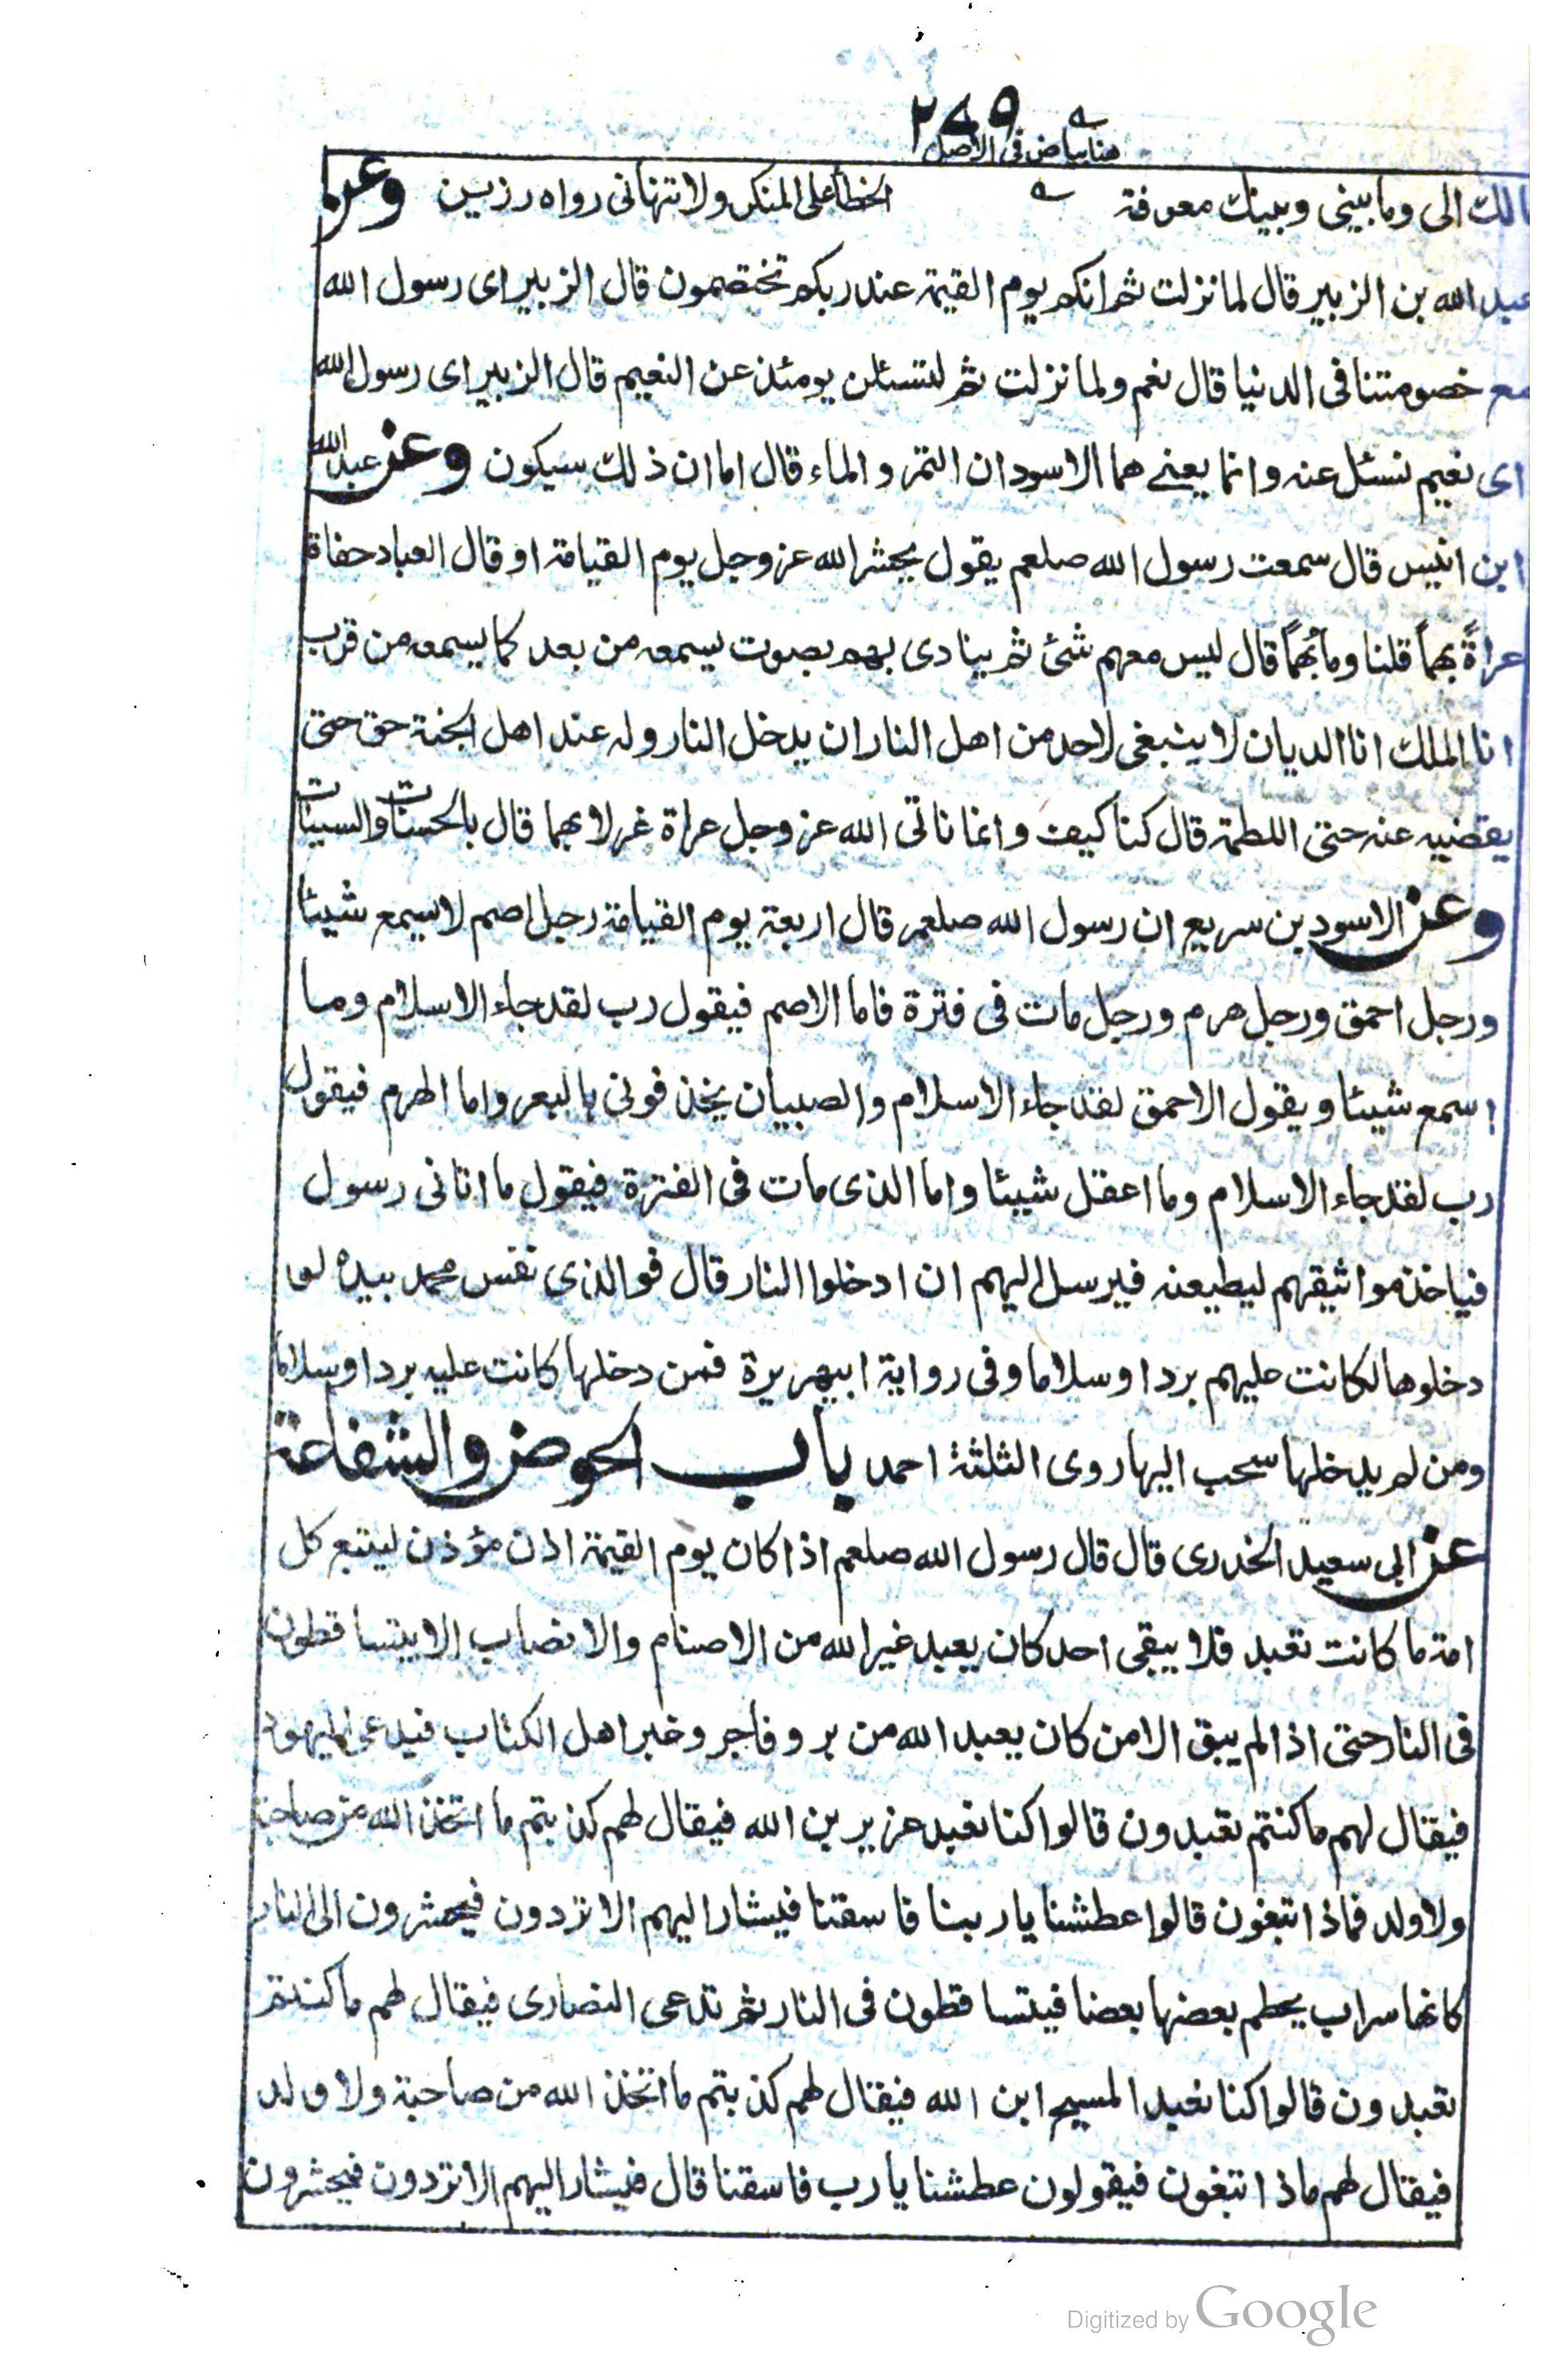 ٢٤٩
هنا بياض فى الاصل
مالك الى وما بينى وبينك معرفة الخطأ على المنكر ولا تنهانى رواه رزين وعن
عبد الله بن الزبير قال لما نزلت ثم انكم يوم القيمة عند ربكم تختصمون قال الزبير اى رسول الله
مع خصومتنا فى الدنيا قال نعم ولما نزلت ثم لتسئلن يومئذ عن النعيم قال الزبير اى رسول الله
اى نعيم نسئل عنه وانما يعنے هما الاسودان التمر و الماء قال اما ان ذلك سيكون وعن عبد الله
ابن انيس قال سمعت رسول الله صلعم يقول يحشر الله عز وجل يوم القيامة او قال العباد حفاة
عراةً بهماً قلنا وما بُهماً قال ليس معهم شئ ثم ينادى بهم بصوت يسمعه من بعد كما يسمعه من قرب
انا الملك انا الديان لا ينبغى لاحد من اهل النار ان يدخل النار وله عند اهل الجنة حق حتى
يقضيه عنه حتى اللطمة قال كنا كيف وانما ناتى الله عز وجل عراة غرلا بهما قال بالحسنات والسيئات
وعن الاسود بن سريع ان رسول الله صلعم قال اربعة يوم القيامة رجل اصم لا يسمع شيئا
ورجل احمق ورجل هرم ورجل مات فى فترة فاما الاصم فيقول رب لقد جاء الاسلام وما
اسمع شيئا ويقول الاحمق لقد جاء الاسلام والصبيان يخذفونى بالبعر واما الهرم فيقول
رب لقد جاء الاسلام وما اعقل شيئا واما الذى مات فى الفترة فيقول ما اتانى رسول
فياخذ مواثيقهم ليطيعنه فيرسل اليهم ان ادخلوا النار قال فو الذى نفس محمد بيده لو
دخلوها لكانت عليهم بردا وسلاما وفى رواية ابيهريرة فمن دخلها كانت عليه بردا وسلاما
ومن لم يدخلها سحب اليها روى الثلثة احمد باب الحوض والشفاعة
عن ابى سعيد الخدرى قال قال رسول الله صلعم اذا كان يوم القيمة اذن مؤذن ليتبع كل
امة ما كانت تعبد فلا يبقى احد كان يعبد غير الله من الاصنام والانصاب الا يتساقطون
فى النار حتى اذا لم يبق الا من كان يعبد الله من بر وفاجر وغبر اهل الكتاب فيدعى اليهود
فيقال لهم ما كنتم تعبدون قالوا كنا نعبد عزير بن الله فيقال لهم كذبتم ما اتخذ الله من صاحبة
ولا ولد فماذا تبغون قالوا عطشنا يا ربنا فاسقنا فيشار اليهم الا تردون فيحشرون الى النار
كانها سراب يحطم بعضها بعضا فيتساقطون فى النار ثم تدعى النصارى فيقال لهم ما كنتم
تعبدون قالوا كنا نعبد المسيح ابن الله فيقال لهم كذبتم ما اتخذ الله من صاحبة ولا ولد
فيقال لهم ماذا تبغون فيقولون عطشنا يا رب فاسقنا قال فيشار اليهم الا تردون فيحشرون
Digitized by Google